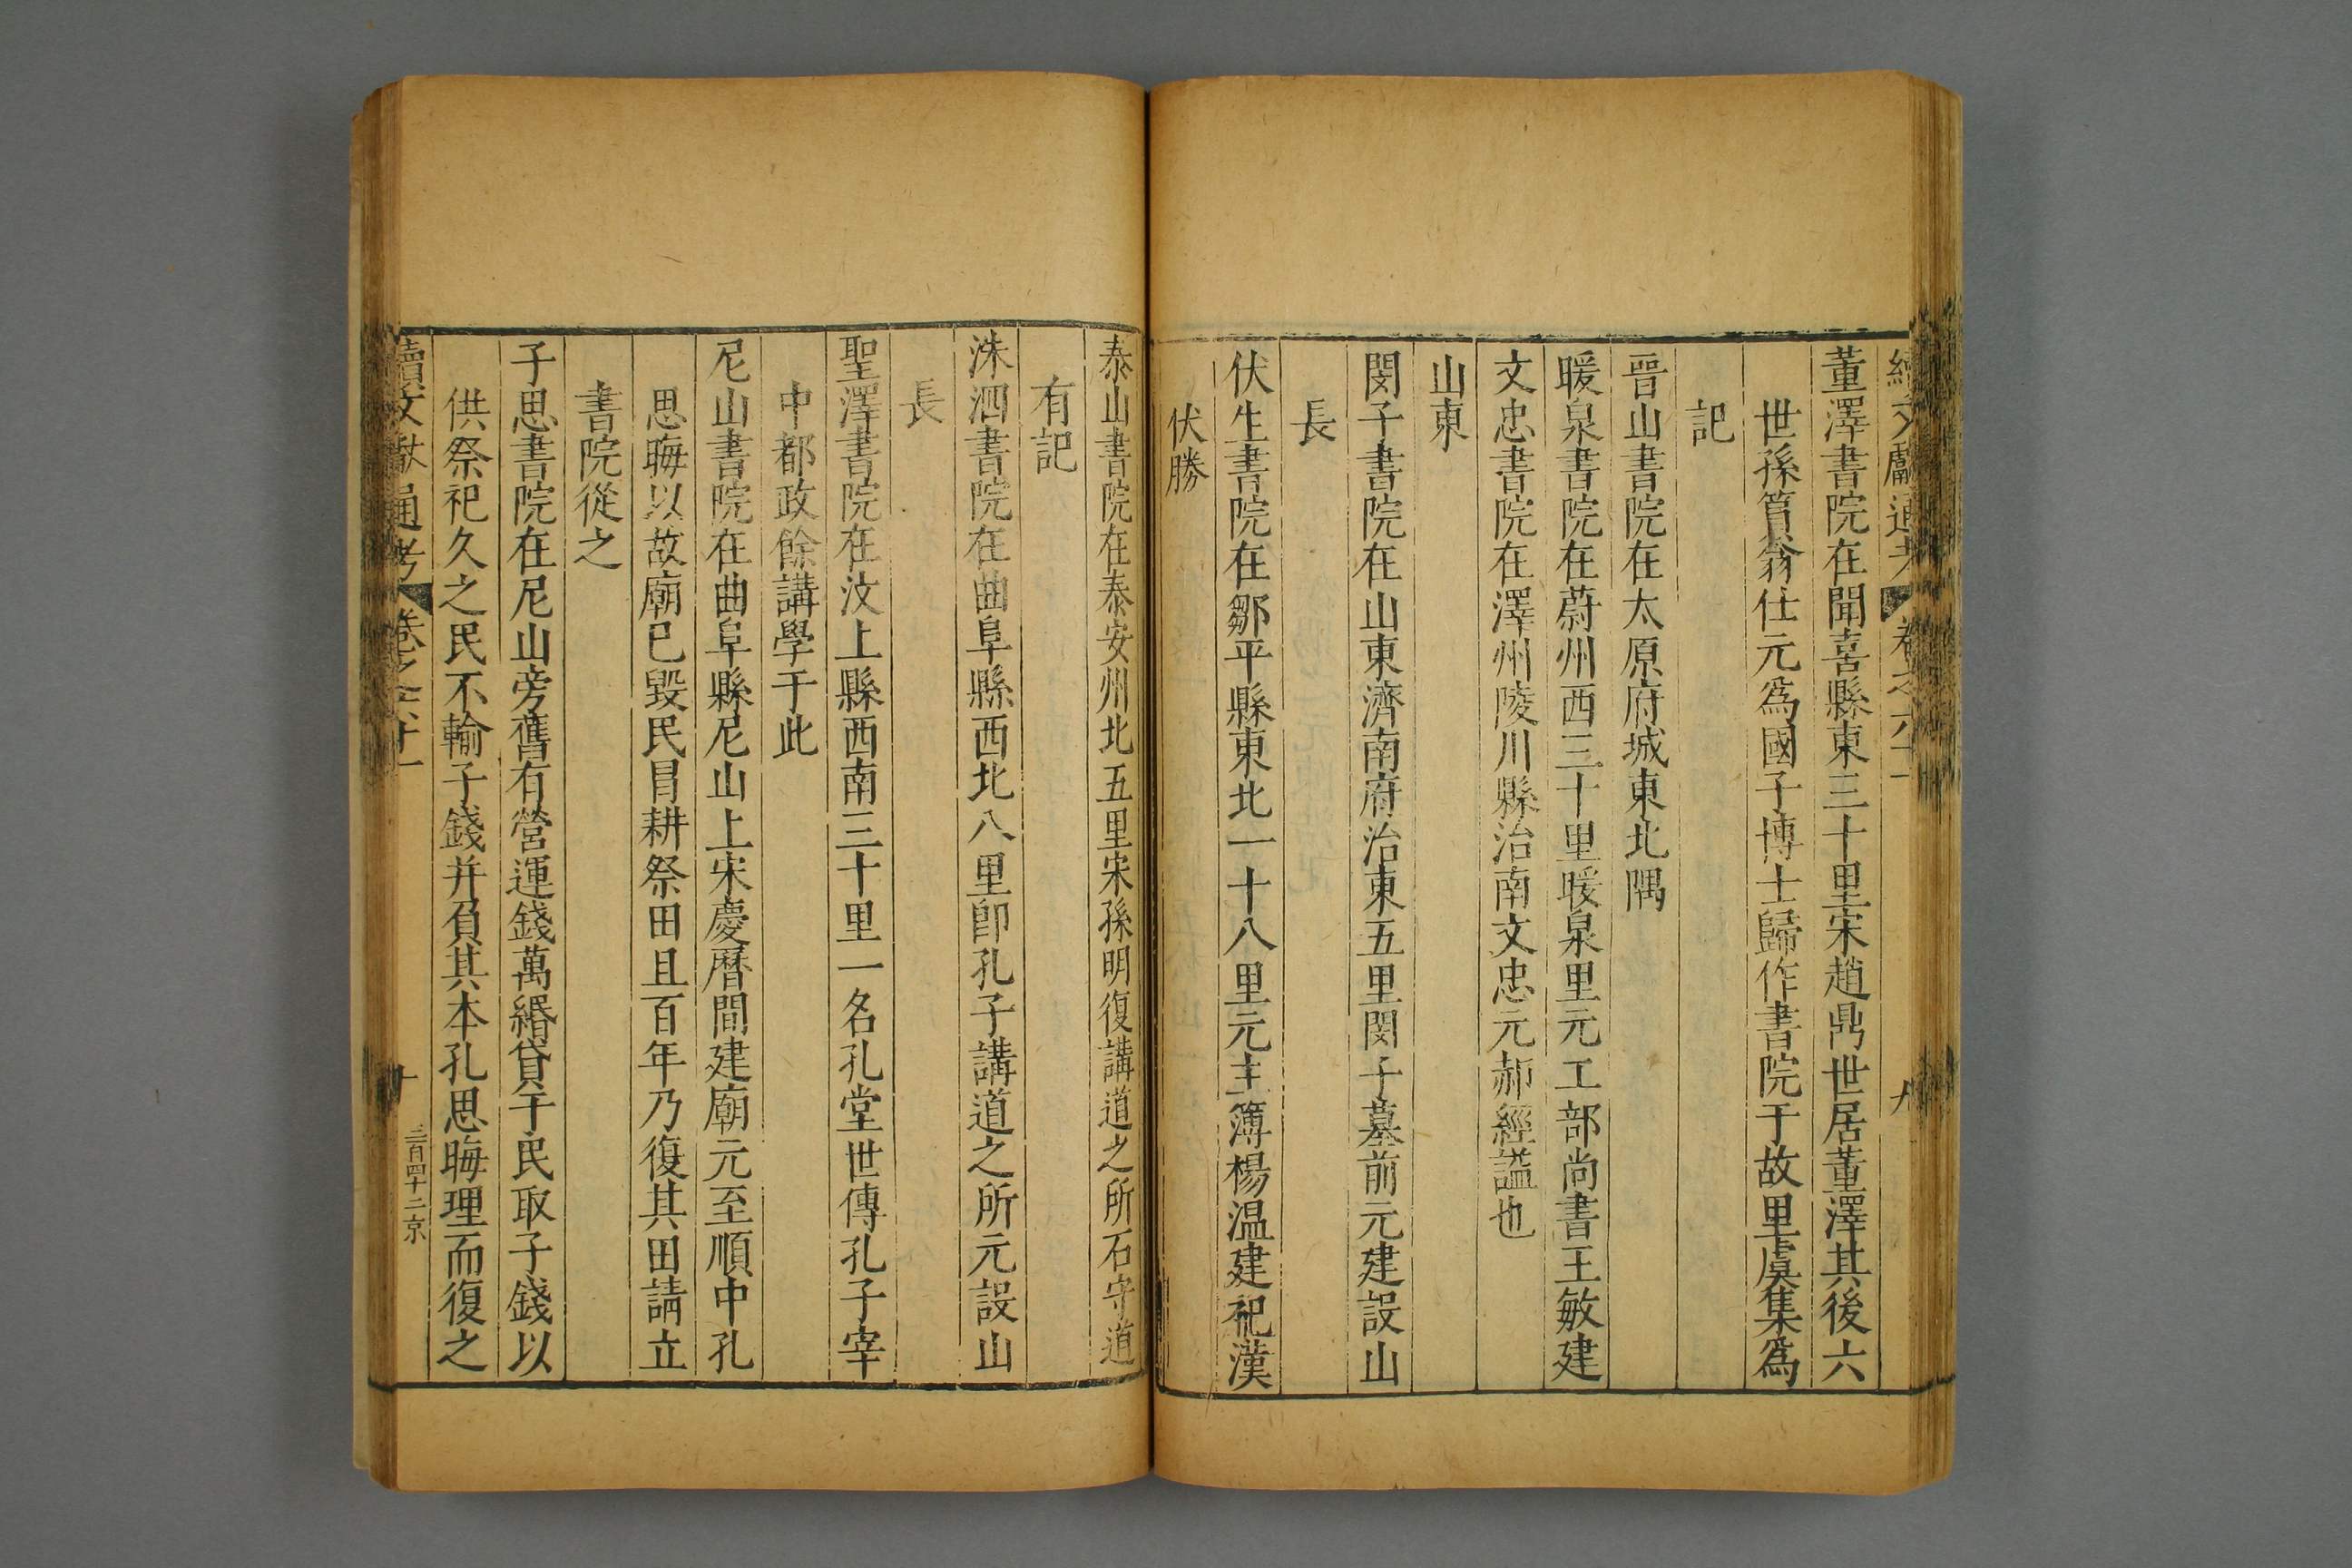 續文獻通考 卷之六十一 九
董澤書院在聞喜縣東三十里宋趙鼎世居董澤其後六
世孫篔翁仕元爲國子博士歸作書院于故里虞集爲
記
晉山書院在太原府城東北隅
暖泉書院在蔚州西三十里暖泉里元工部尚書王敏建
文忠書院在澤州陵川縣治南文忠元郝經謚也
山東
閔子書院在山東濟南府治東五里閔子墓前元建設山
長
伏生書院在鄒平縣東北一十八里元主簿楊温建祀漢
伏勝
泰山書院在泰安州北五里宋孫明復講道之所石守道
有記
洙泗書院在曲阜縣西北八里卽孔子講道之所元設山
長
聖澤書院在汶上縣西南三十里一名孔堂世傳孔子宰
中都政餘講學于此
尼山書院在曲阜縣尼山上宋慶曆間建廟元至順中孔
思晦以故廟已毀民冒耕祭田且百年乃復其田請立
書院從之
子思書院在尼山旁舊有營運錢萬緡貸于民取子錢以
供祭祀久之民不輸子錢并負其本孔思晦理而復之
續文獻通考 卷之六十一 十 三百四十二京